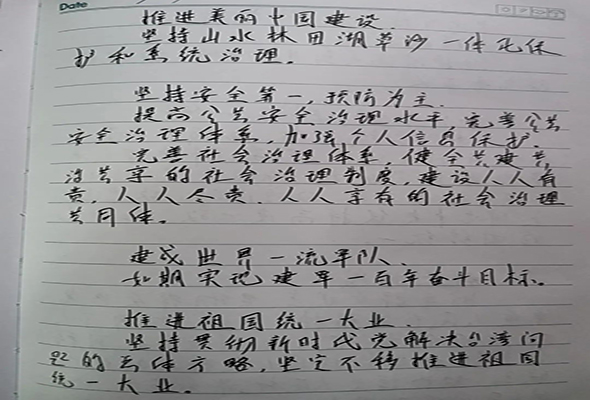 Date
推进美丽中国建设.
坚持山水林田湖草沙一体化保
护和系统治理.
坚持安全第一,预防为主.
提高公共安全治理水平.完善公共
安全治理体系,加强个人信息保护.
完善社会治理体系,健全共建共
治共享的社会治理制度,建设人人有
责,人人尽责,人人享有的社会治理
共同体。
建成世界一流军队.
如期实现建军一百年奋斗目标。
推进祖国统一大业.
坚持贯彻新时代党解决台湾问
题的总体方略,坚定不移推进祖国
统一大业.